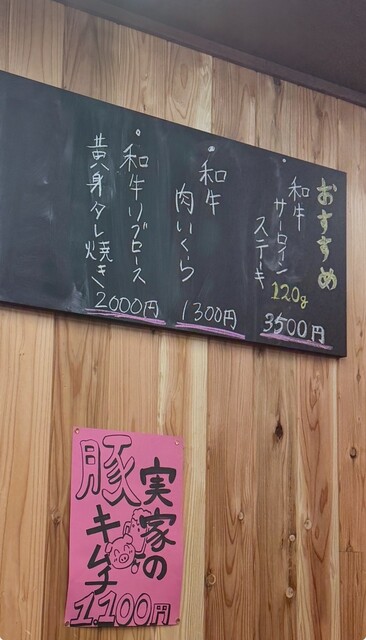 おすすめ
和牛
サーロイン
ステーキ
120g
3500円
和牛
肉いくら
1300円
和牛リブロース
黄身タレ焼き
2000円
実家の
豚キムチ
1,100円